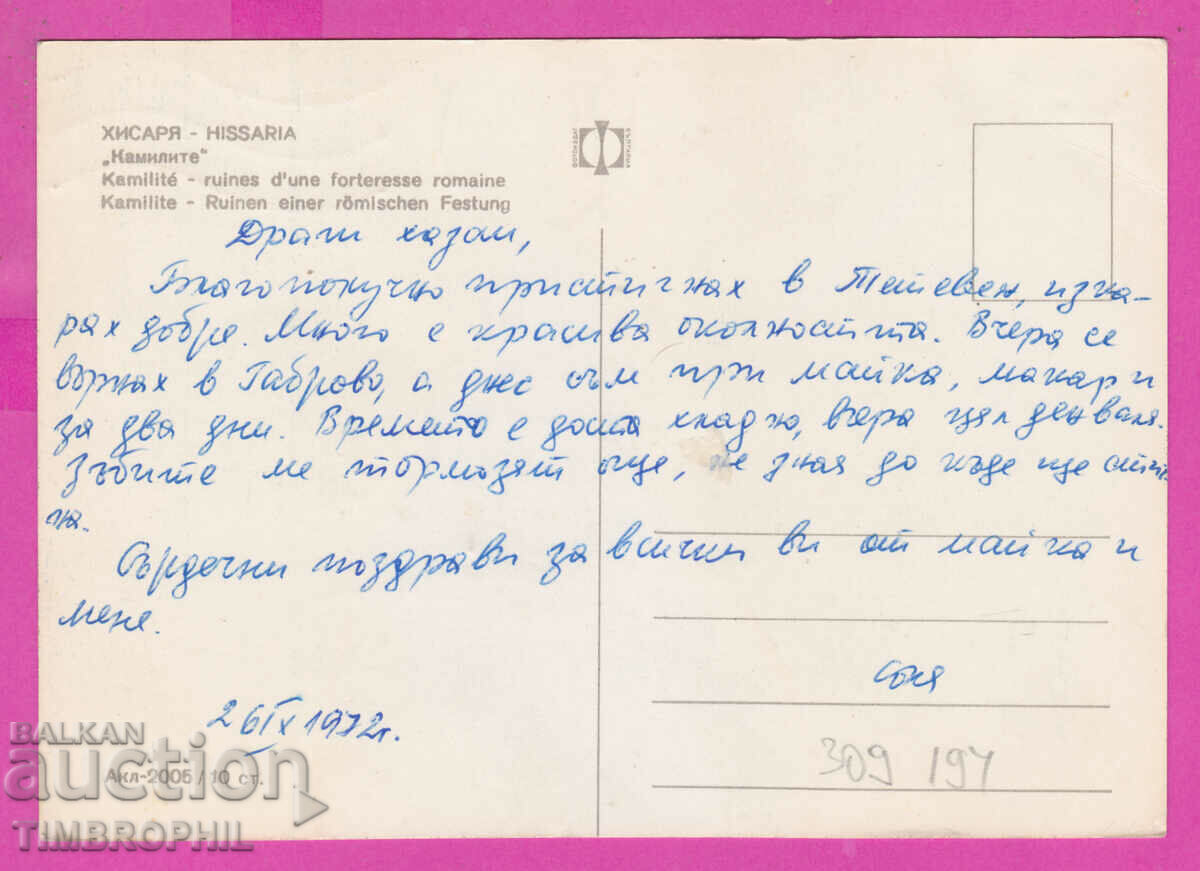 ХИСАРЯ - HISSARIA
„Камилите“
Kamilité - ruines d'une forteresse romaine
Kamilite - Ruinen einer römischen Festung
ФОТОИЗДАТ
БЪЛГАРИЯ
Драги хазаи,
Благополучно пристигнах в Тетевен, изка-
рах добре. Много е красива околността. Вчера се
върнах в Габрово, а днес съм при майка, макар и
за два дни. Времето е доста хладно, вчера цял ден валя.
Зъбите ме тормозят още, не зная до къде ще стиг-
на.
Сърдечни поздрави за всички ви от майка и
мене.
Соня
26 IX 1972г.
Акл-2005 / 10 ст.
309 197
BALKAN
auction
TIMBROPHIL